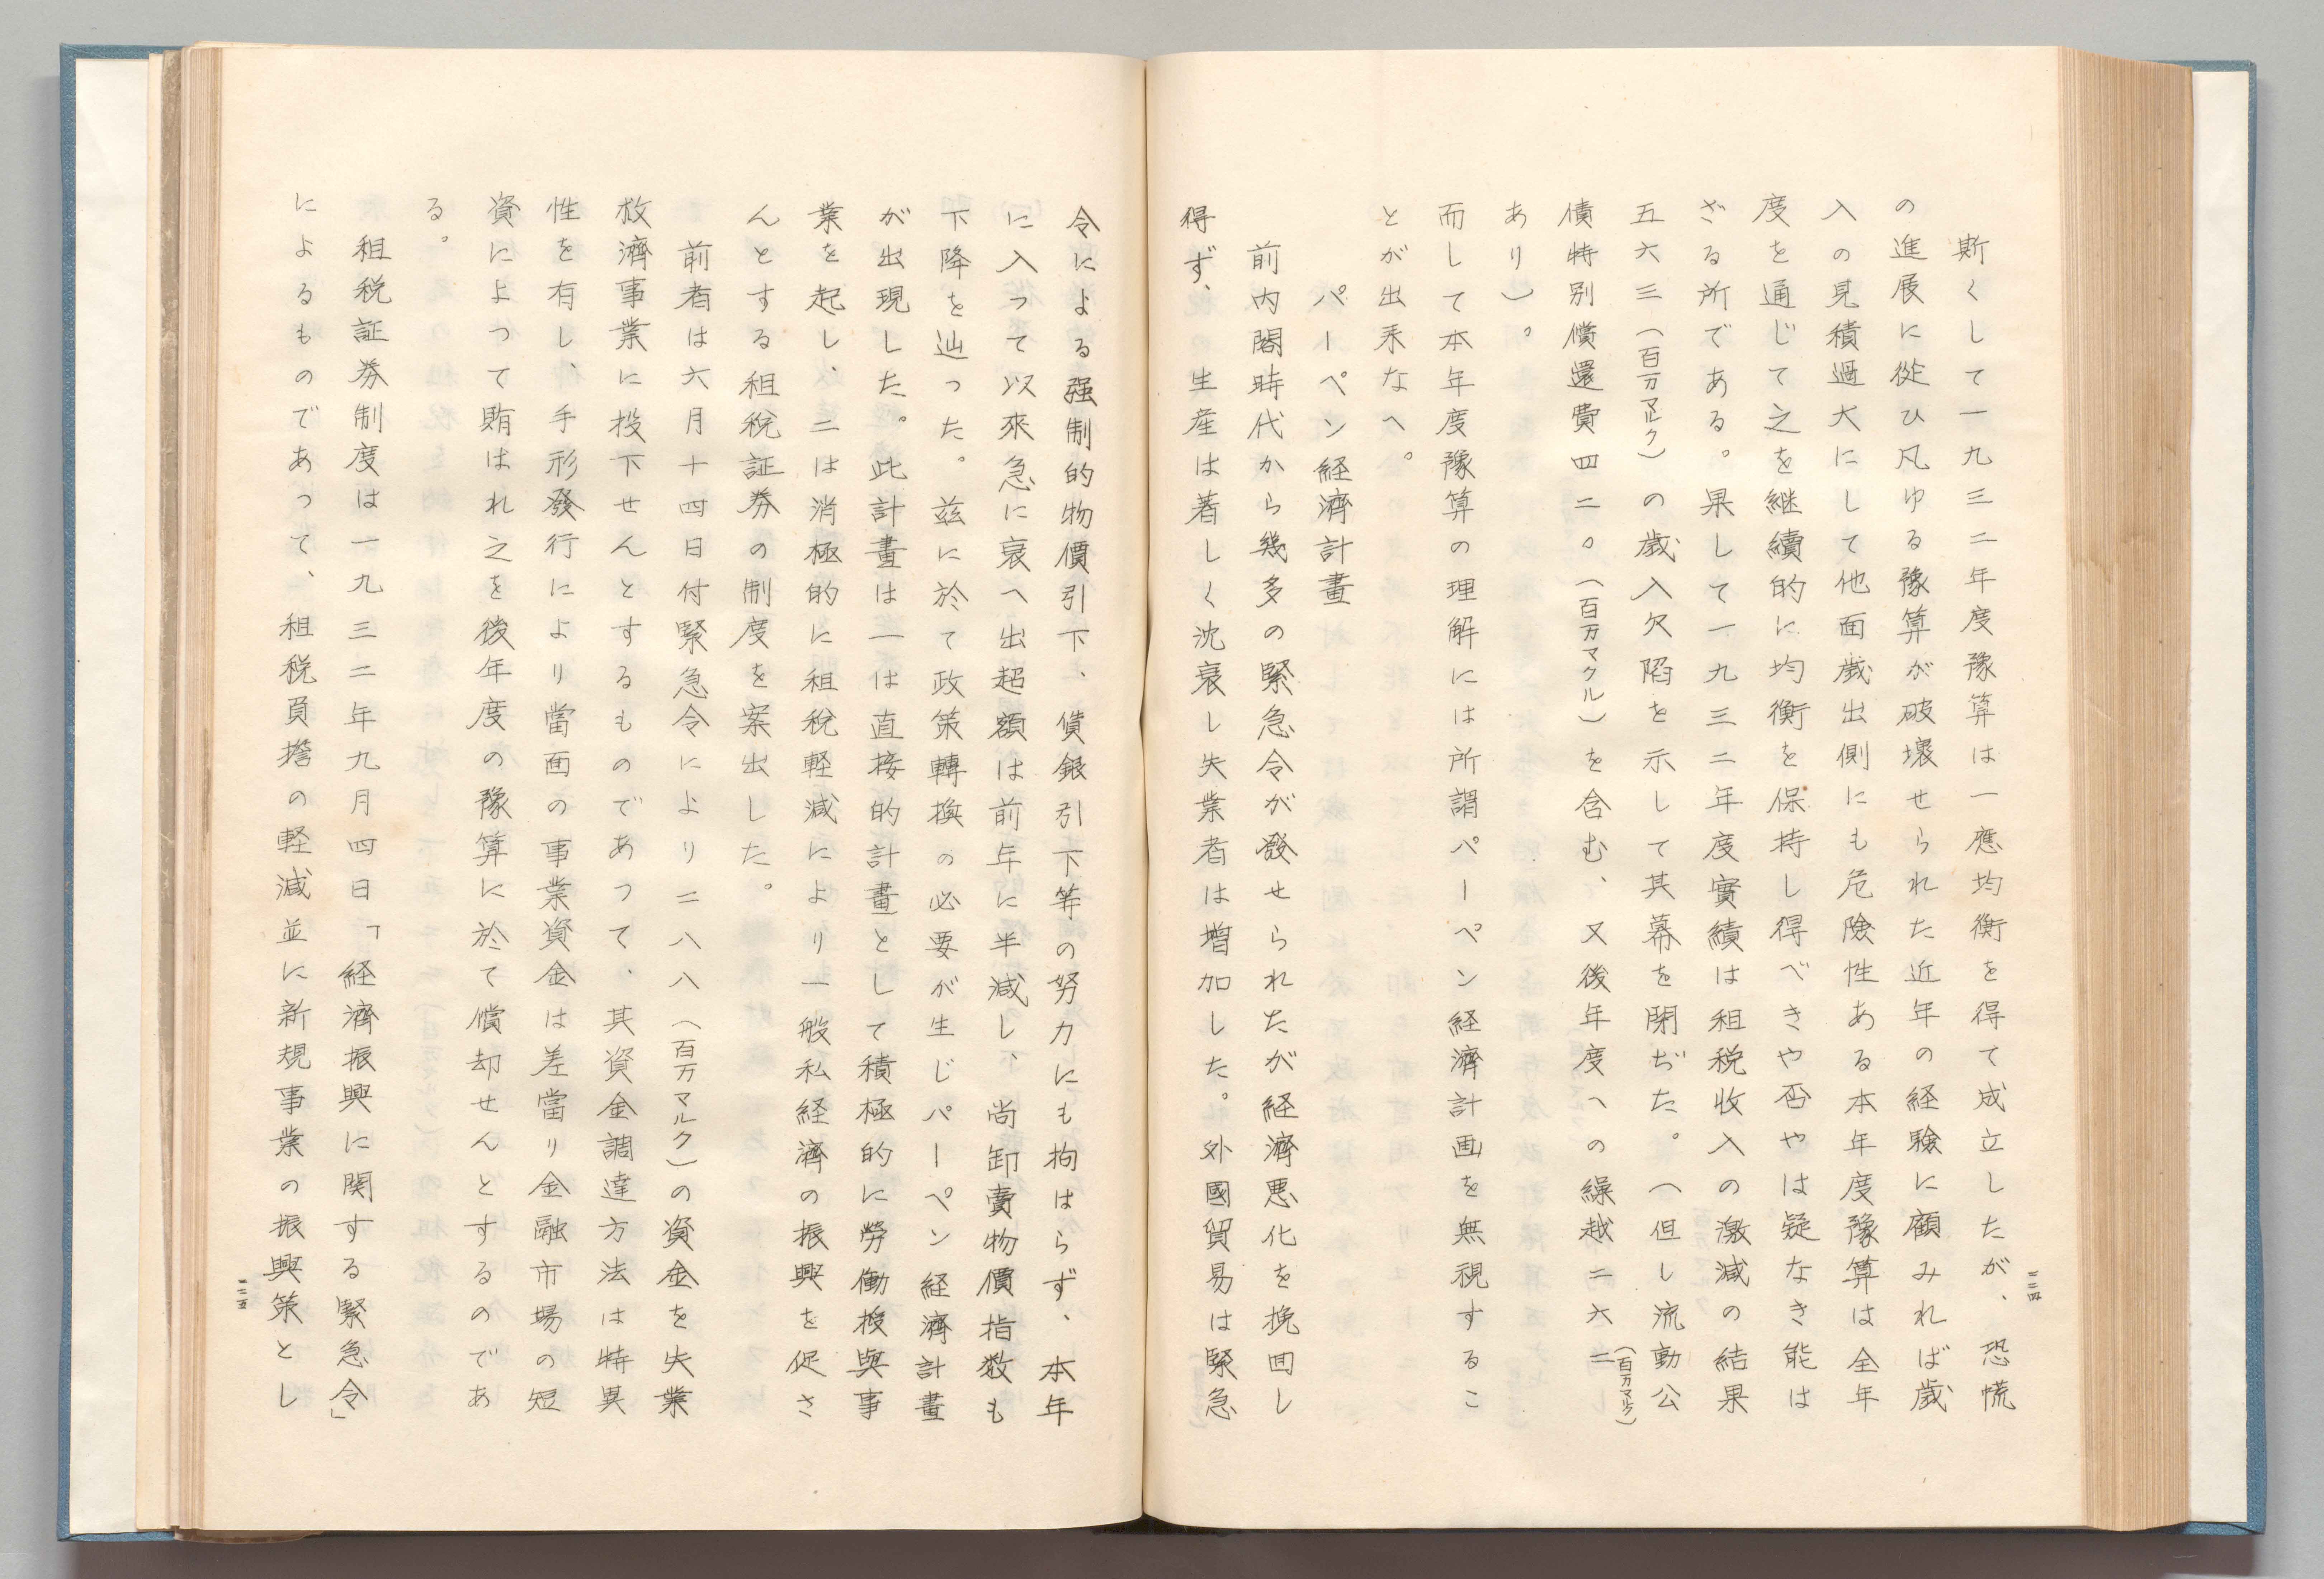 一二四
斯くして一九三二年度豫算は一應均衡を得て成立したが、恐慌
の進展に從ひ凡ゆる豫算が破壞せられた近年の経験に顧みれば歳
入の見積過大にして他面歳出側にも危険性ある本年度豫算は全年
度を通じて之を継續的に均衡を保持し得べきや否やは疑なき能は
ざる所である。果して一九三二年度實績は租税收入の激減の結果
五六三（百万マルク）の歳入欠陥を示して其幕を閉ぢた。（但し流動公
債特別償還費四二〇（百万マクル）を含む、又後年度への繰越二六二（百万マルク）
あり）。
而して本年度豫算の理解には所謂パーペン経濟計画を無視するこ
とが出来なへ。
パーペン経濟計畫
前内閣時代から幾多の緊急令が發せられたが経濟悪化を挽回し
得ず、生産は著しく沈衰し失業者は増加した。外國貿易は緊急
令による强制的物價引下、債銀引下等の努力にも拘はらず、本年
に入って以來急に衰へ出超額は前年に半減し、尚卸賣物價指数も
下降を辿った。茲に於て政策轉換の必要が生じパーペン経濟計畫
が出現した。此計畫は一は直接的計畫として積極的に勞働授與事
業を起し、二は消極的に租税軽減により一般私経濟の振興を促さ
んとする租税証券の制度を案出した。
前者は六月十四日付緊急令により二八八（百万マルク）の資金を失業
救濟事業に投下せんとするものであつて、其資金調達方法は特異
性を有し、手形發行により當面の事業資金は差當り金融市場の短
資によつて賄はれ之を後年度の豫算に於て償却せんとするのであ
る。
租税証券制度は一九三二年九月四日「経濟振興に関する緊急令」
によるものであって、租税負擔の軽減並に新規事業の振興策とし
一二五